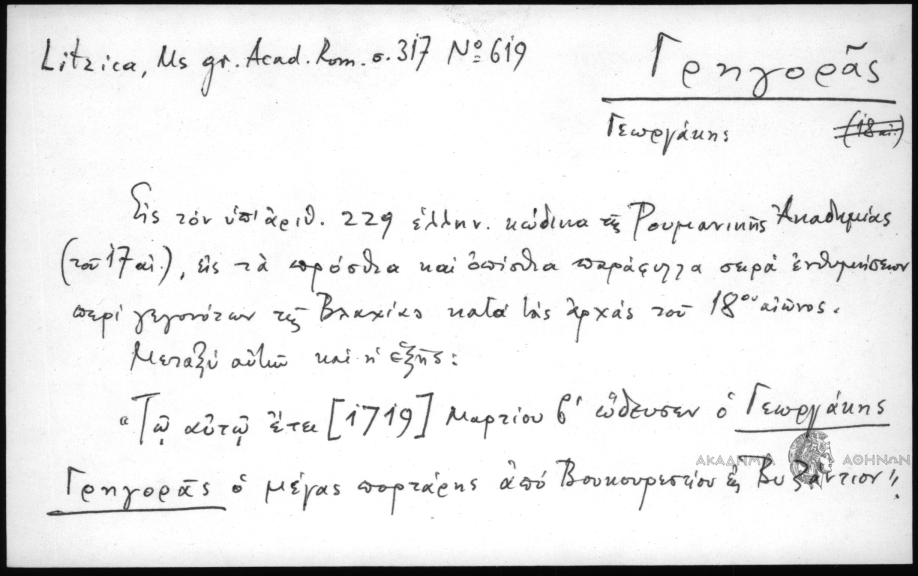 Litzica, Ms gr. Acad. Rom. σ. 317 Nº 619
Γρηγορᾶς
Γεωργάκης (18 αἰ.)
Εἰς τὸν ὑπ' ἀριθ. 229 ἑλλην. κώδικα τῆς Ρουμανικῆς Ἀκαδημίας
(τοῦ 17 αἰ.), εἰς τὰ πρόσθια καὶ ὀπίσθια παράφυλλα σειρά ἐνθυμήσεων
περί γεγονότων τῆς Βλαχίας κατά τὰς ἀρχάς τοῦ 18ου αἰῶνος.
Μεταξύ αὐτῶν καὶ ἡ ἑξῆς:
"Τῷ αὐτῷ ἔτει [1719] Μαρτίου β' ὥδευσεν ὁ Γεωργάκης
Γρηγορᾶς ὁ μέγας πορτάρης ἀπό Βουκουρεστίου εἰς Βυζάντιον".
ΑΚΑΔΗΜΙΑ ΑΘΗΝΩΝ